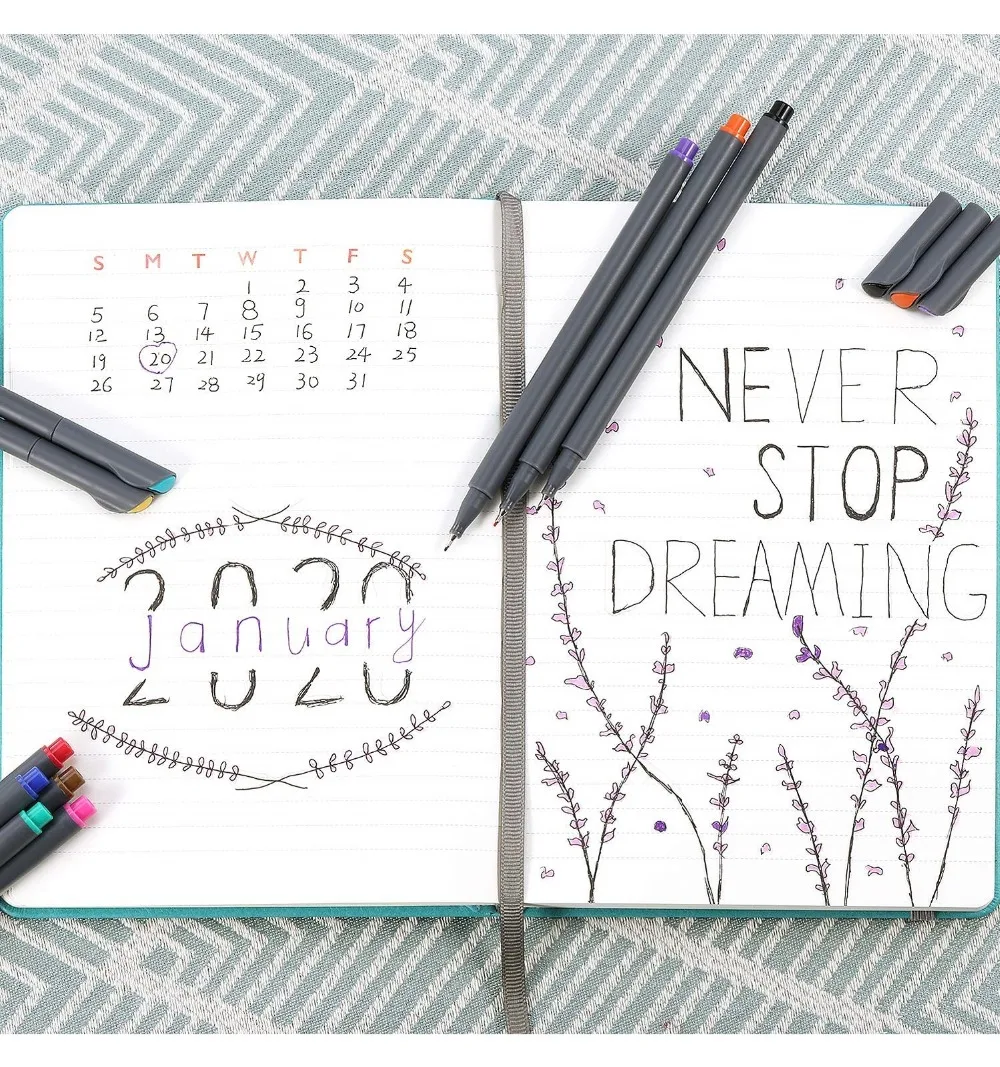 S M T W T F S
1 2 3 4
5 6 7 8 9 10 11
12 13 14 15 16 17 18
19 20 21 22 23 24 25
26 27 28 29 30 31
2020
January
NEVER
STOP
DREAMING